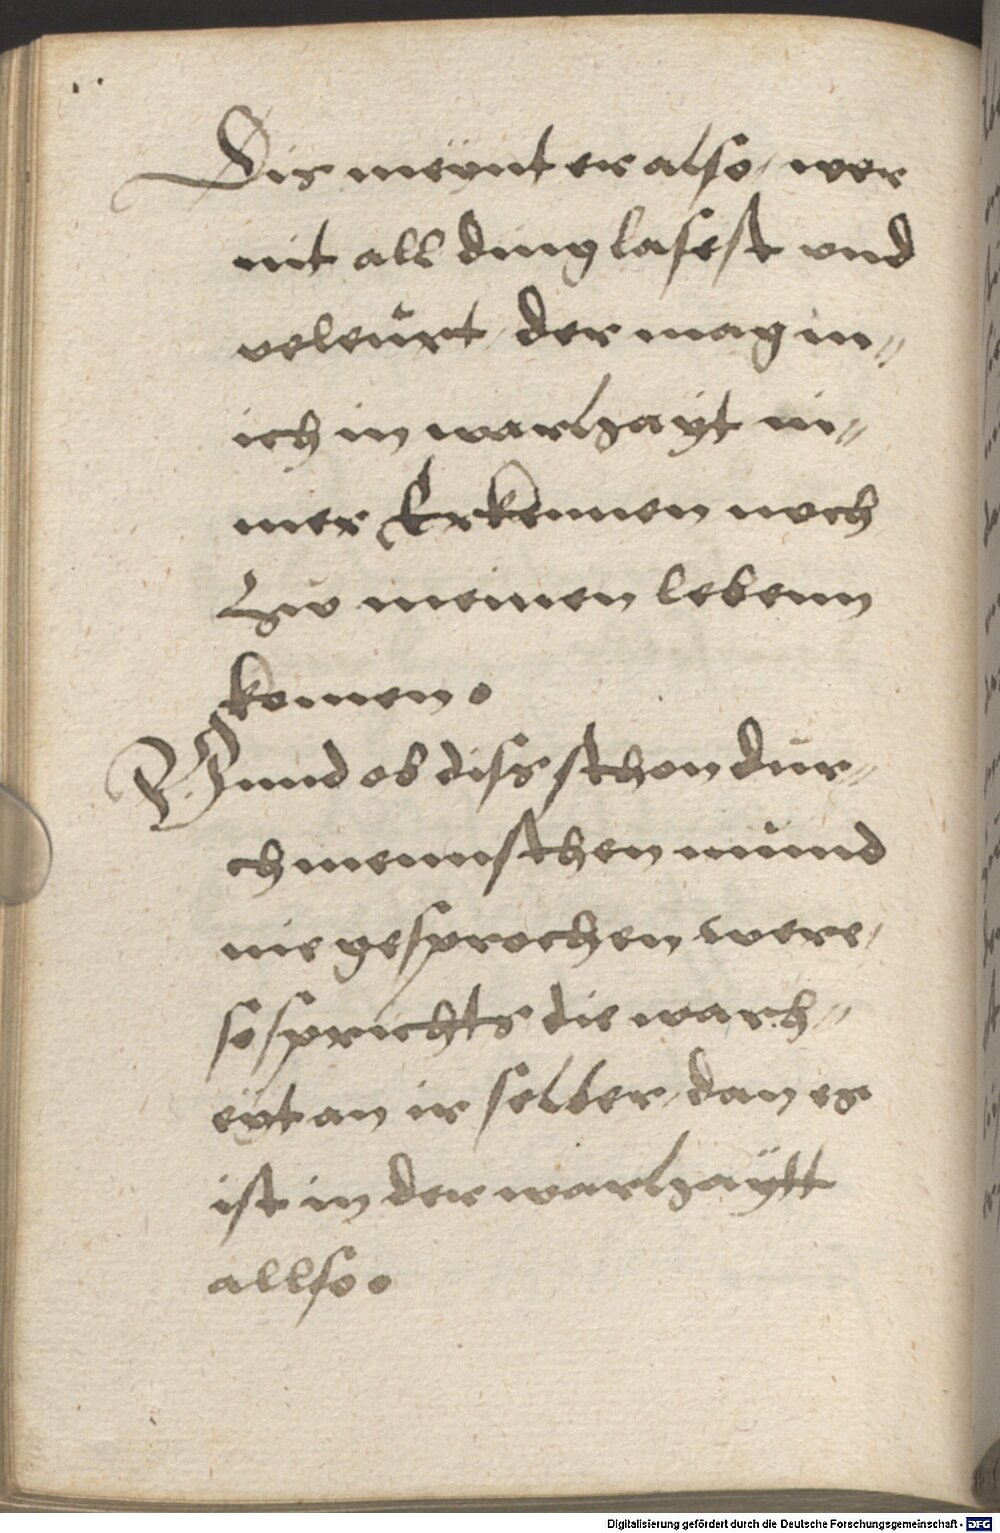 Dis meynt er also / wer
nit all ding lasest vnd
veleürt / der mag m=
ich in warhayt ni=
mer Erkennen noch
Zuo meinen lebenn
komen.
Vnnd ob diss schon dür=
ch mennschen münd
nie gesprochen were /
so sprichts die warh=
eyt an ir selber / dan es
ist in der warhaÿtt
allso.
Digitalisierung gefördert durch die Deutsche Forschungsgemeinschaft - DFG